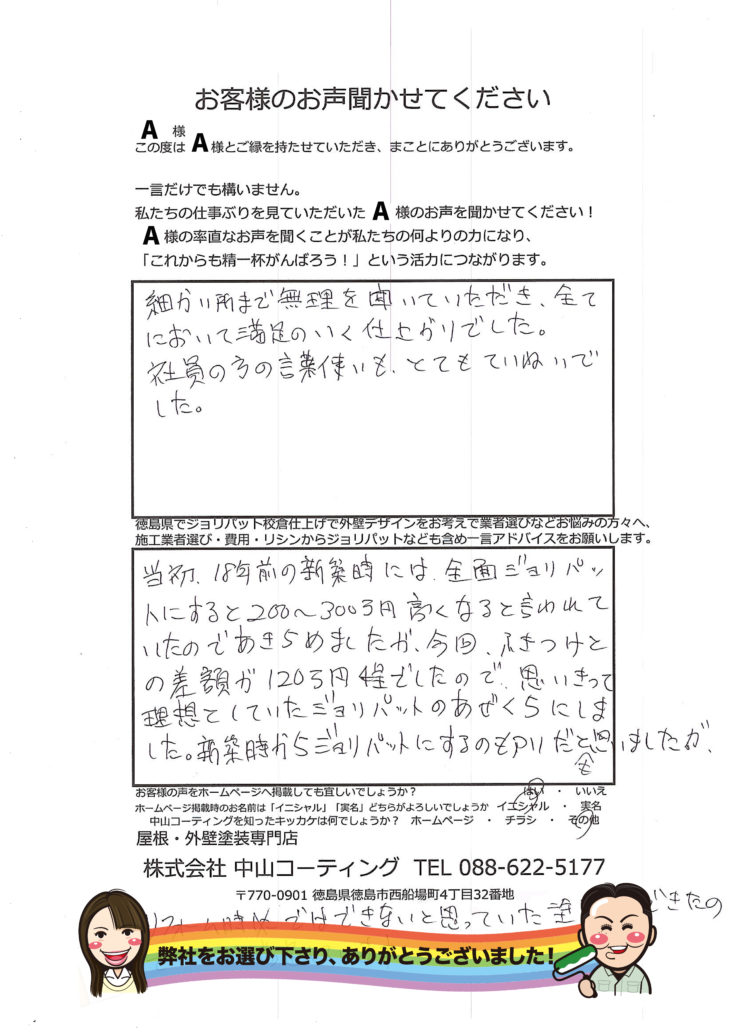 お客様のお声聞かせてください
A 様
この度は A 様とご縁を持たせていただき、まことにありがとうございます。
一言だけでも構いません。
私たちの仕事ぶりを見ていただいた A 様のお声を聞かせてください！
A 様の率直なお声を聞くことが私たちの何よりの力になり、
「これからも精一杯がんばろう！」という活力につながります。
細かい所まで無理を聞いていただき、全て
において満足のいく仕上がりでした。
社員の方の言葉使いも、とてもていねいで
した。
徳島県でジョリパット校倉仕上げで外壁デザインをお考えで業者選びなどお悩みの方々へ、
施工業者選び・費用・リシンからジョリパットなども含め一言アドバイスをお願いします。
当初、18年前の新築時には、全面ジョリパッ
トにすると200〜300万円高くなると言われて
いたのであきらめましたが、今回、ふきつけと
の差額が120万円程でしたので、思いきって
理想としていたジョリパットのあぜくらにしま
した。新築時からジョリパットにするのもアリだとも思いましたが、
お客様の声をホームページへ掲載しても宜しいでしょうか？ はい ・ いいえ
ホームページ掲載時のお名前は「イニシャル」「実名」どちらがよろしいでしょうか イニシャル ・ 実名
中山コーティングを知ったキッカケは何でしょうか？ ホームページ ・ チラシ ・ その他
屋根・外壁塗装専門店
株式会社 中山コーティング TEL 088-622-5177
〒770-0901 徳島県徳島市西船場町4丁目32番地
ではできないと思っていた塗 できたの
弊社をお選び下さり、ありがとうございました！